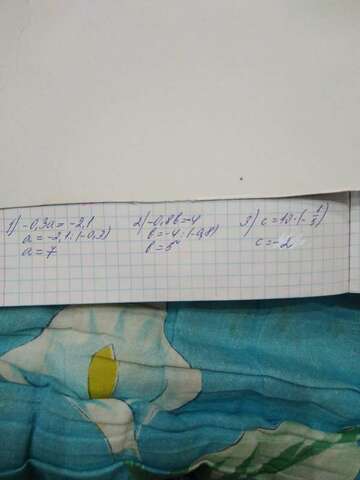 1) -0,3a = -2,1
a = -2,1 : (-0,3)
a = 7
2) -0,8b = -4
b = -4 : (-0,8)
b = 5
3) c = 10 · (-1/5)
c = -2